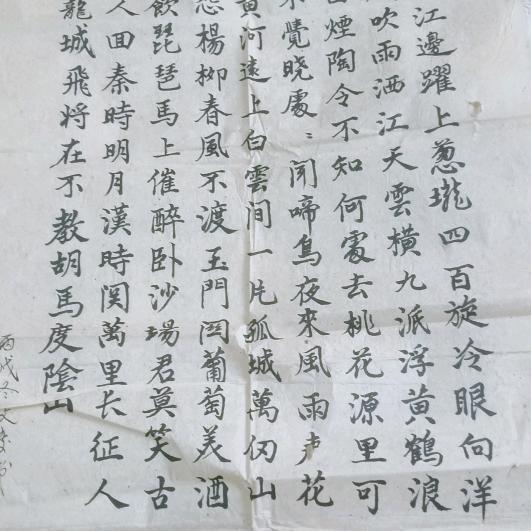 江邊躍上葱壠四百旋冷眼向洋
吹雨洒江天雲橫九派浮黄鶴浪
煙陶令不知何處去桃花源里可
不覺晓處〻聞啼鳥夜來風雨声花
黄河遠上白雲间一片孤城萬仞山
怨楊柳春風不渡玉門関葡萄美酒
飲琵琶馬上催醉卧沙場君莫笑古
人回秦時明月漢時関萬里长征人
龍城飛将在不教胡馬度陰山
丙戌冬